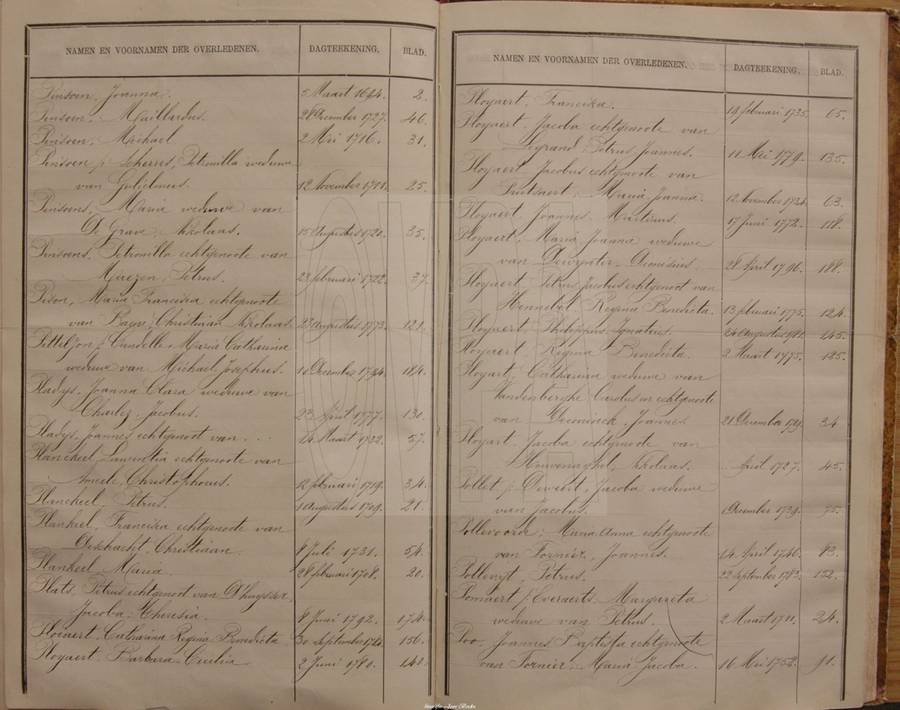 NAMEN EN VOORNAMEN DER OVERLEDENEN. DAGTEEKENING. BLAD.
Pinsoen, Joanna. 5 Maart 1694. 2.
Pinsoen, Maillardus. 28 December 1737. 46.
Pinsoen, Michael 2 Mei 1716. 31.
Pinsoen p. Scherres, Petronilla weduwe
van Gulielmus. 12 November 1711. 25.
Pinsoens, Maria weduwe van
De Grave, Nikolaas. 15 Augustus 1720. 35.
Pinsoens, Petronilla echtgenoote van
Petrus. 22 februari 1722. 37.
Maria Francisca echtgenoote
van Christiaan Nikolaas. 23 Augustus 1773. 121.
Maria Catharina
weduwe van Michael Josephus. 10 December 1794. 184.
Pladys, Joanna Clara weduwe van
Charlez, Jacobus. 23 April 1777. 130.
Pladys, Joannes echtgenoot van ... 14 Maart 1732. 57.
Planckeel, Laurentia echtgenoote van
Christophorus. 12 februari 1719. 34.
Planckeel, Petrus. 10 augustus 1709. 21.
Plankeel, Francisca echtgenoote van
Deschacht, Christiaan. 8 Juli 1731. 54.
Plankeel, Maria. 28 februari 1708. 20.
Plats, Petrus echtgenoot van D'huysser,
Jacoba Theresia. 8 Juni 1792. 174.
Catharina Regina Benedicta 30 september 1786. 156.
Ployaert, Barbara Cecilia 2 Juni 1780. 140.
NAMEN EN VOORNAMEN DER OVERLEDENEN. DAGTEEKENING. BLAD.
Ployaert, Francisca. 19 februari 1735. 65.
Ployaert, Jacoba echtgenoote van
Legrand, Petrus Joannes. 11 Mei 1779. 135.
Ployaert Jacobus echtgenoote van
Maria Joanna. 12 November 1734. 63.
Ployaert, Joannes Martinus. 17 Juni 1772. 118.
Ployaert, Maria Joanna weduwe
van Dionisius. 28 April 1796. 188.
Ployaert, Petrus Jacobus echtgenoot van
Hennebel, Regina Benedicta. 13 februari 1775. 124.
Ployaert, Philippus Ignatius. 24 augustus 1781. 145.
Ployaert, Regina Benedicta. 2 Maart 1775. 125.
Ployart, Catharina weduwe van
Vandenberghe Carolus en echtgenoote
van Joannes 21 December 1719. 34
Ployart, Jacoba echtgenoote van
Nikolaas. April 1727. 45.
Pollet p. Dewedt, Jacoba weduwe
van Jacobus. December 1739. 75.
Pollevoorde, Maria Anna echtgenoote
van Fornier, Joannes. 14 April 1746. 83.
Petrus. 22 september 1783. 152.
Pomaert p. Everaerts, Margareta
weduwe van Petrus. 2 Maart 1711. 24.
Poo, Joannes Baptista echtgenoote
van Fornier, Maria Jacoba. 16 Mei 1752. 91.